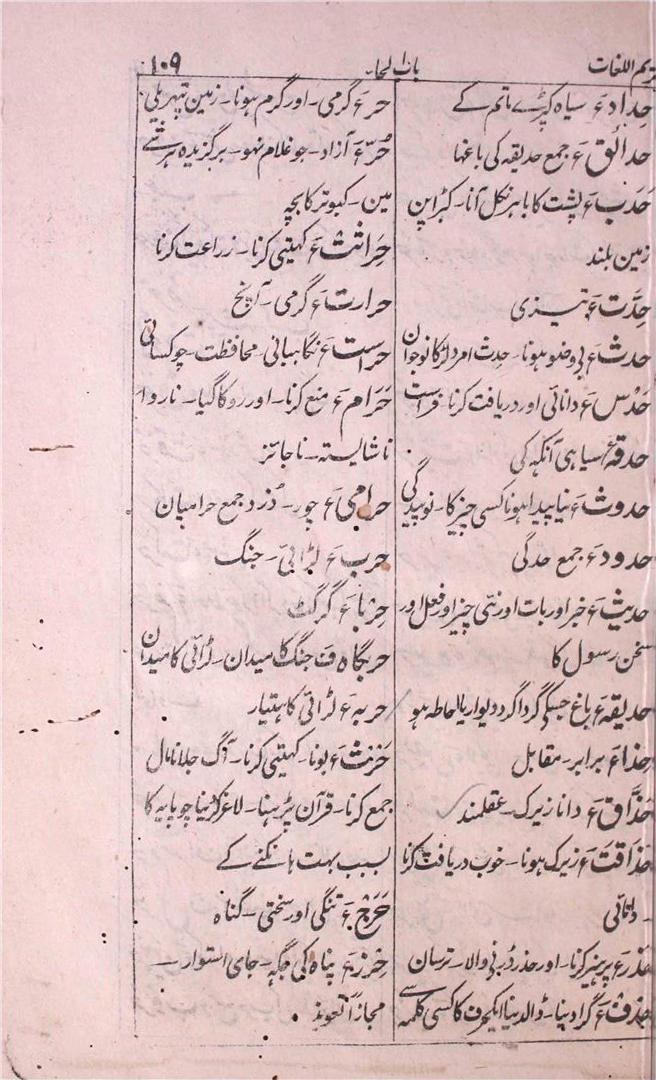 کریم اللغات
باب الحاء
۱۰۹
حِداد ع سیاہ کپڑے ماتم کے
حدائق ع جمع حدیقہ کی باغہا
حَدَب ع پشت کا باہر نکل آنا۔ کبڑاپن
زمین بلند
حِدَّت ع تیزی
حدث ع بی وضو ہونا۔ حدث امرد لڑکا نوجوان
حَدْس ع دانائی اور دریافت کرنا۔ فراست
حدقہ ع سیاہی آنکہہ کی
حدوث ع نیا پیدا ہونا کسی چیز کا۔ نوپیدگی
حدود ع جمع حد کی
حدیث ع خبر اور بات اور نئی چیز اور فعل اور
سخن رسول کا
حدیقہ ع باغ جسکی گرداگرد دیوار یا احاطہ ہو
حذاء ع برابر۔ مقابل
حذّاق ع دانا زیرک۔ عقلمند
حذاقت ع زیرک ہونا۔ خوب دریافت کرنا
۔ دانائی
حذر ع پرہیز کرنا۔ اور حذر ڈرنی والا۔ ترسان
حذف ع گرادینا۔ ڈالدینا ایکحرف کا کسی کلمہ سے
حر ع گرمی۔ اور گرم ہونا۔ زمین تپہریلی
حُرّ ع آزاد۔ جو غلام نہو۔ برگزیدہ ہر شے
مین۔ کبوتر کا بچہ
حِراثت ع کہیتی کرنا۔ زراعت کرنا
حرارت ع گرمی۔ آنچ
حراست ع نگاہبانی۔ محافظت۔ چوکسائی
حَرام ع منع کرنا۔ اور روکا گیا۔ ناروا
ناشایستہ۔ ناجائز
حرامی ع چور۔ دُزد جمع حرامیان
حرب ع لڑائی۔ جنگ
حِربا ع گرگٹ
حربگاہ ف جنگ کا میدان۔ لڑائی کا میدان
حربہ ع لڑائی کا ہتیار
حَرْث ع بونا۔ کہیتی کرنا۔ آگ جلانا مال
جمع کرنا۔ قرآن پڑہنا۔ لاغر کرنا چوپایہ کا
بسبب بہت ہانکنے کے
حَرَج ع تنگی اور سختی۔ گناہ
حِرز ع پناہ کی جگہہ۔ جای استوار۔
مجازاً تعویذ